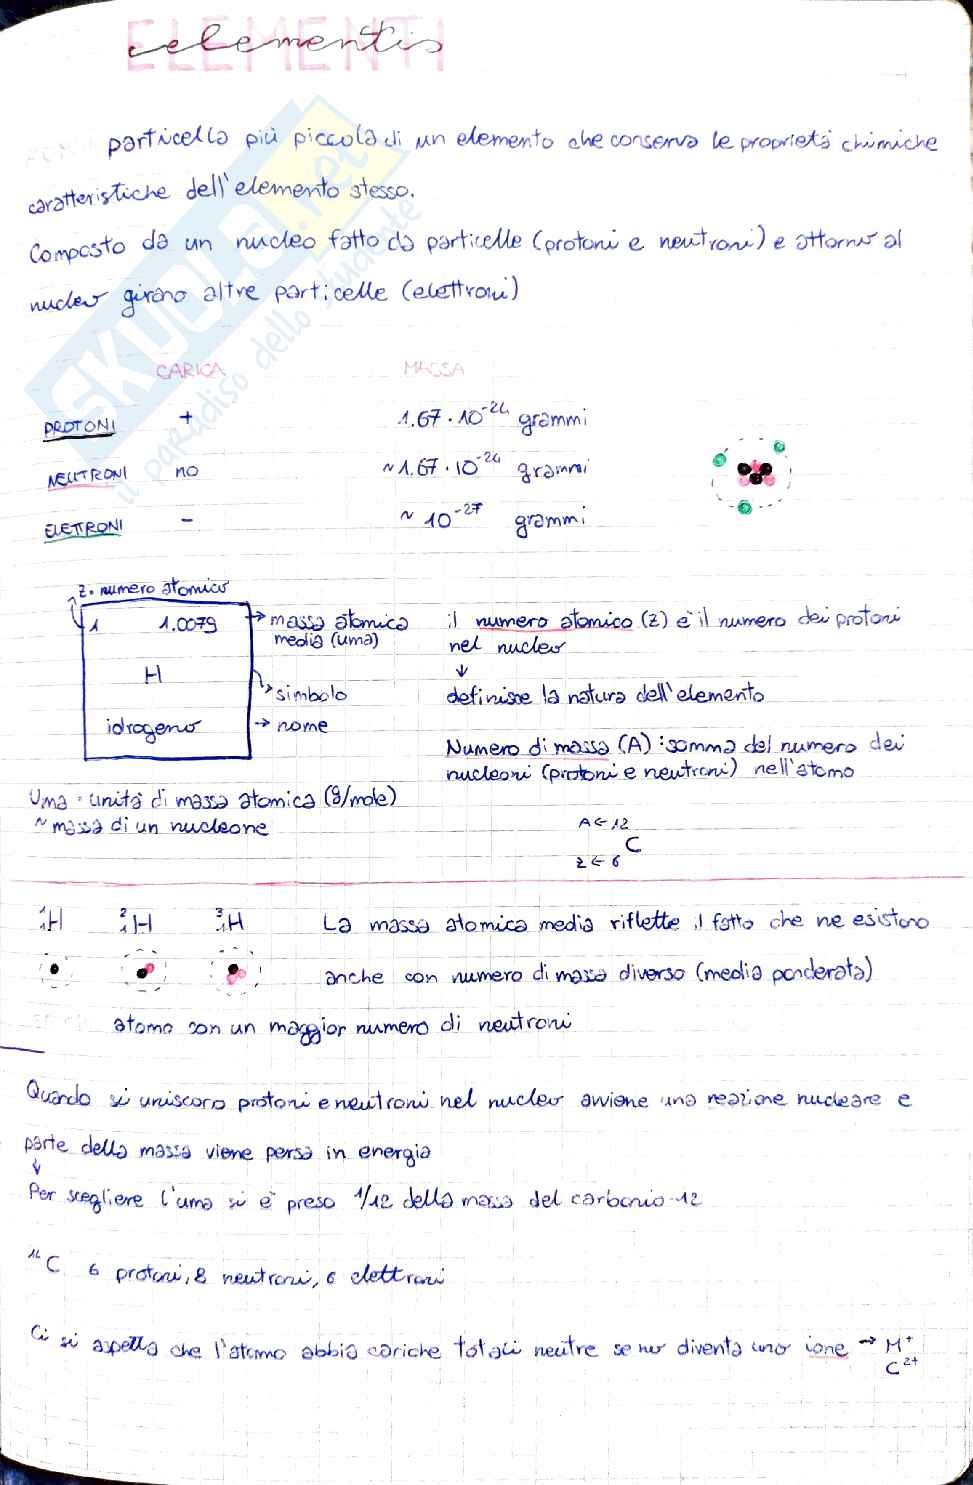 ELEMENTI
elementis
particella più piccola di un elemento che conserva le proprietà chimiche
caratteristiche dell'elemento stesso.
Composto da un nucleo fatto da particelle (protoni e neutroni) e attorno al
nucleo girano altre particelle (elettroni)
SKUOLA.net
il paradiso dello studente
CARICA MASSA
PROTONI + 1.67 · 10⁻²⁴ grammi
NEUTRONI no ~1.67 · 10⁻²⁴ grammi
ELETTRONI - ~ 10⁻²⁷ grammi
Z. numero atomico
1 1.0079 → massa atomica
media (uma)
H
→ simbolo
idrogeno → nome
il numero atomico (Z) è il numero dei protoni
nel nucleo
↓
definisce la natura dell'elemento
Numero di massa (A) : somma del numero dei
nucleoni (protoni e neutroni) nell'atomo
Uma : unità di massa atomica (g/mole)
~ massa di un nucleone
A ← 12
C
Z ← 6
¹₁H ²₁H ³₁H La massa atomica media riflette il fatto che ne esistono
anche con numero di massa diverso (media ponderata)
atomo con un maggior numero di neutroni
Quando si uniscono protoni e neutroni nel nucleo avviene una reazione nucleare e
parte della massa viene persa in energia
↓
Per scegliere l'uma si è preso 1/12 della massa del carbonio-12
¹⁴C 6 protoni, 8 neutroni, 6 elettroni
Ci si aspetta che l'atomo abbia cariche totali neutre se no diventa uno ione → H⁺
C²⁺